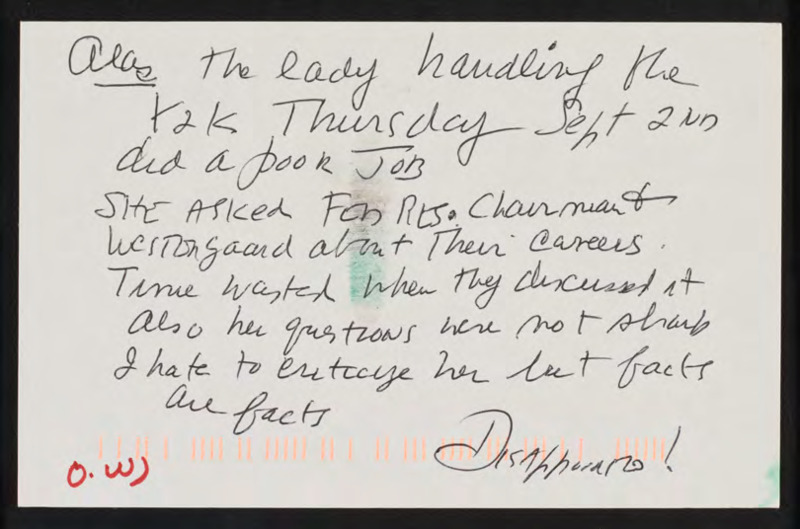 Alas the lady handling the
Y2K Thursday Sept 2ND
did a poor JOB
SHE ASKed FED RES. Chairman &
Westergaard about Their Careers.
Time wasted when they discussed it
Also her questions were not sharp
I hate to criticize her but facts
are facts
Disappointed!
O.W)